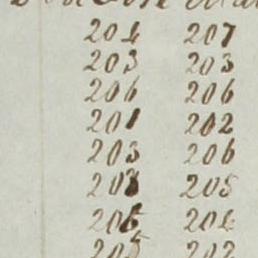 204 207
203 203
206 206
201 202
203 206
208 205
206 206
205 202